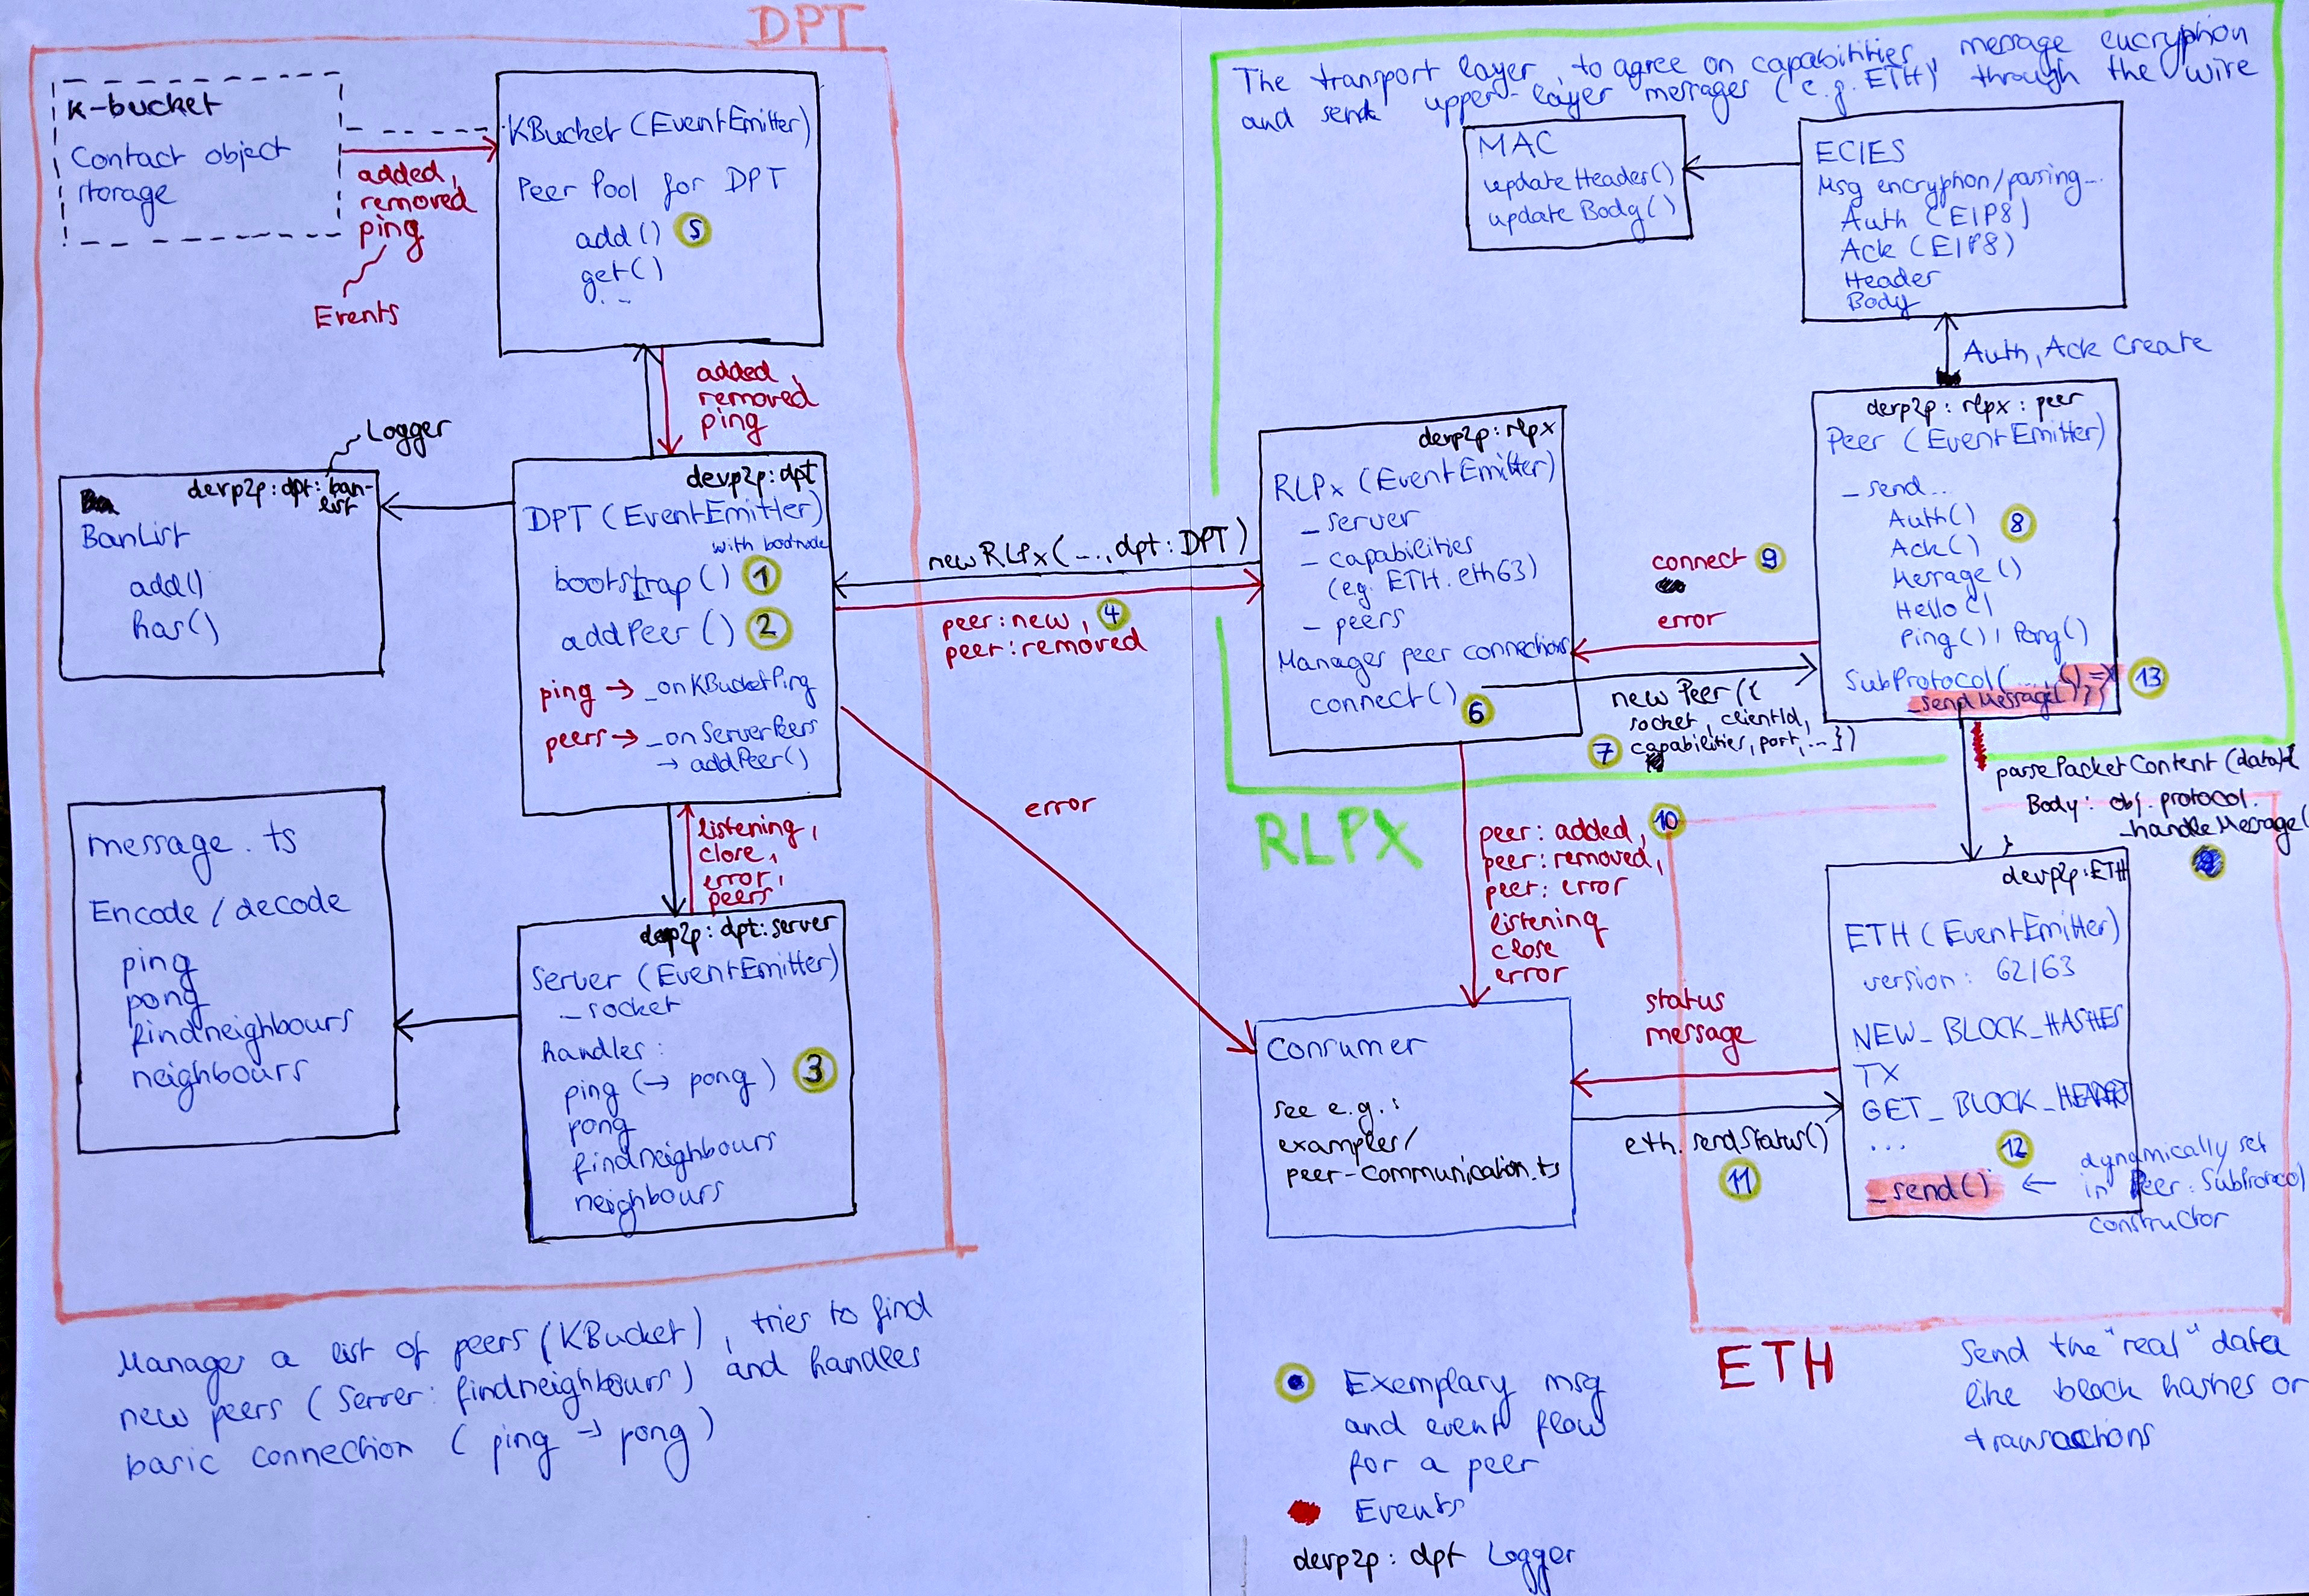 DPT
k-bucket
Contact object
storage
added,
removed
ping
Events
KBucket (EventEmitter)
Peer Pool for DPT
add() 5
get()
...
added,
removed
ping
Logger
devp2p:dpt:ban-
list
BanList
add()
has()
devp2p:dpt
DPT (EventEmitter)
with bootnode
bootstrap() 1
addPeer() 2
ping → _onKBucketPing
peers → _onServerPeers
→ addPeer()
listening,
close,
error,
peers
message.ts
Encode / decode
ping
pong
findneighbours
neighbours
devp2p:dpt:server
Server (EventEmitter)
_socket
handles:
ping (→ pong) 3
pong
findneighbours
neighbours
Manages a list of peers (KBucket), tries to find
new peers (Server: findneighbours) and handles
basic connection (ping → pong)
new RLPx(..., dpt: DPT)
peer:new, 4
peer:removed
error
The transport layer, to agree on capabilities, message encryption
and send upper-layer messages (e.g. ETH) through the wire
MAC
updateHeader()
updateBody()
ECIES
Msg encryption/parsing...
Auth (EIP8)
Ack (EIP8)
Header
Body
Auth, Ack Create
devp2p:rlpx
RLPx (EventEmitter)
_server
- capabilities
(eg. ETH.eth63)
- peers
Manages peer connections
connect() 6
connect 9
error
new Peer({
socket, clientId,
7 capabilities, port, ... })
devp2p:rlpx:peer
Peer (EventEmitter)
_send...
Auth() 8
Ack()
Message()
Hello()
Ping(), Pong()
SubProtocol(..., () => 13
_sendMessage() })
RLPX
parsePacketContent(data) {
Body: obj.protocol.
_handleMessage(
}
peer: added, 10
peer: removed,
peer: error
listening
close
error
Consumer
see e.g.:
examples/
peer-communication.ts
status
message
eth.sendStatus()
11
devp2p:ETH
ETH (EventEmitter)
version: 62/63
NEW_BLOCK_HASHES
TX
GET_BLOCK_HEADERS
...
12
_send() ← dynamically set
in Peer: SubProtocol
constructor
ETH
Send the "real" data
like block hashes or
transactions
Exemplary msg
and event flow
for a peer
Events
devp2p:dpt Logger